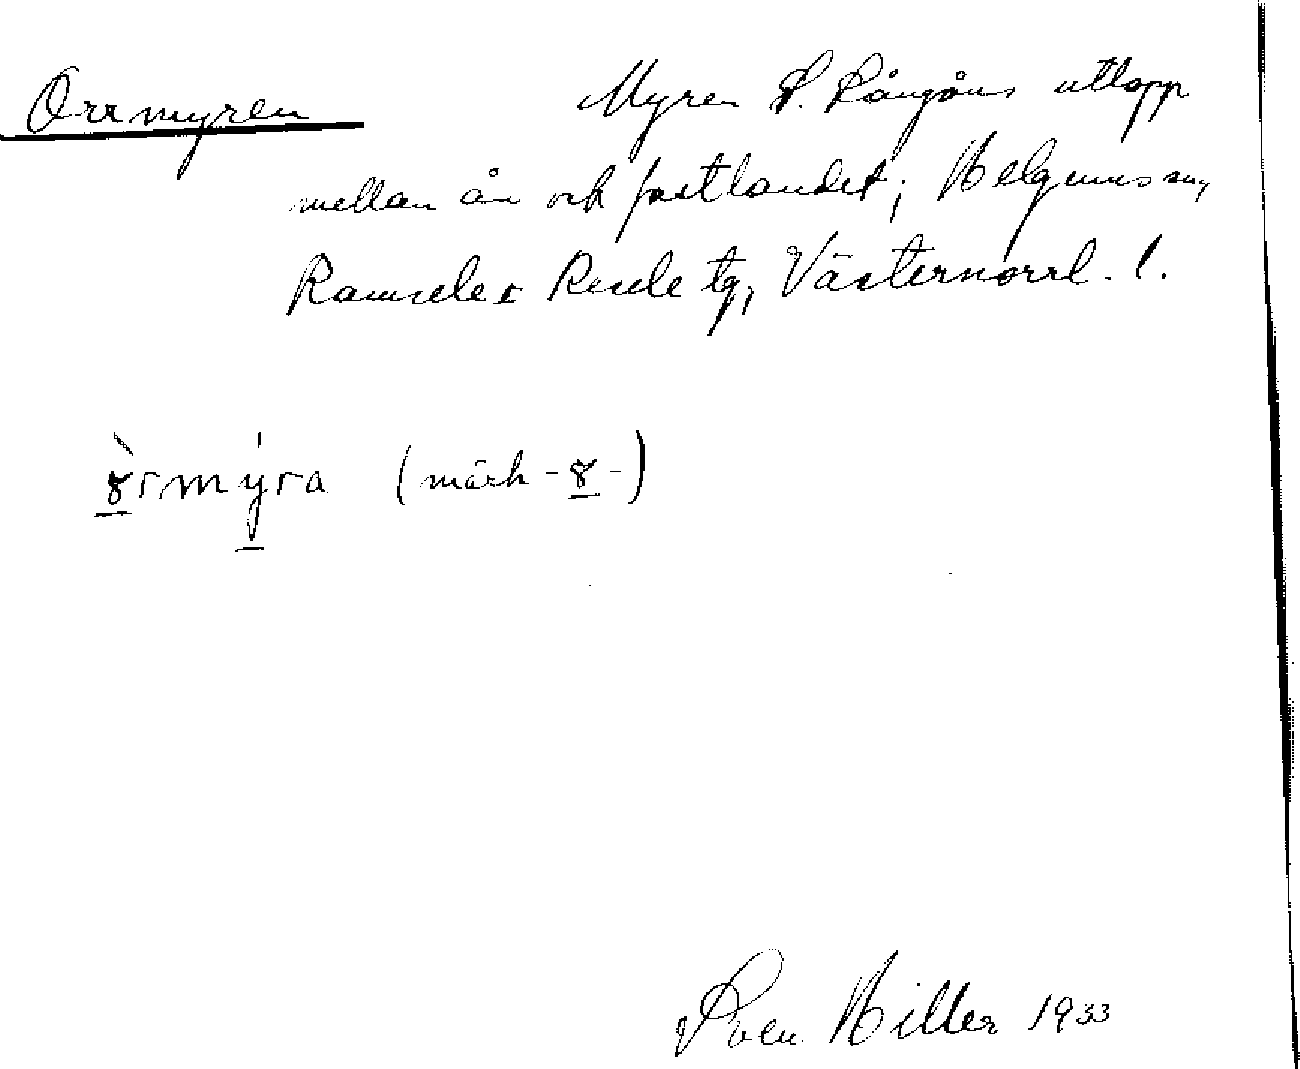 Orrmyren Myren S. Rångåns utlopp
mellan ån och fastlandet; Helgums sn,
Ramsele o Resele tg, Västernorrl. l.
ormyra (märk - -)
Sven Hiller 1933